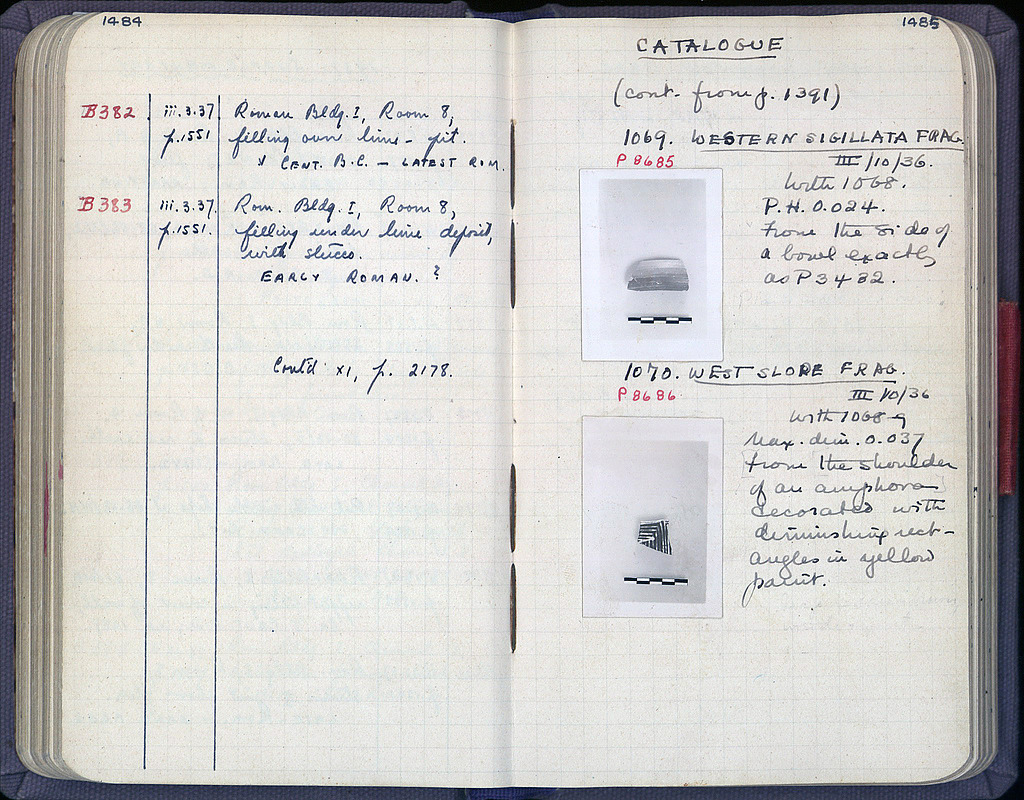 1484
B382 iii.3.37 Roman Bldg. I, Room 8,
p.1551 filling over lime-pit.
I CENT. B.C. – LATEST ROM.
B383 iii.3.37. Rom. Bldg. I, Room 8,
p.1551. filling under lime deposit,
with stucco.
EARLY ROMAN. ?
Cont'd XI, p. 2178.
1485
CATALOGUE
(cont. from p. 1391)
1069. WESTERN SIGILLATA FRAG.
P 8685
III/10/36.
With 1068.
P.H. 0.024.
From the side of
a bowl exactly
as P 3482.
1070. WEST SLOPE FRAG.
P 8686
III/10/36
With 1068
Max. dim. 0.037
From the shoulder
of an amphora
decorated with
diminishing rect-
angles in yellow
paint.